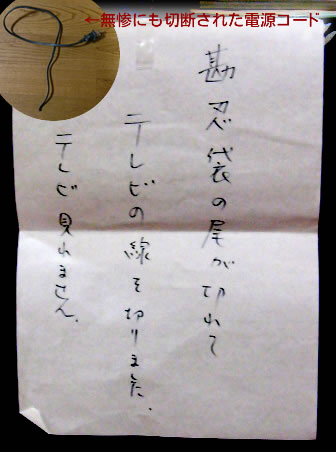 ←無惨にも切断された電源コード
勘忍袋の尾が切れて
テレビの線を切りました。
テレビ見れません。